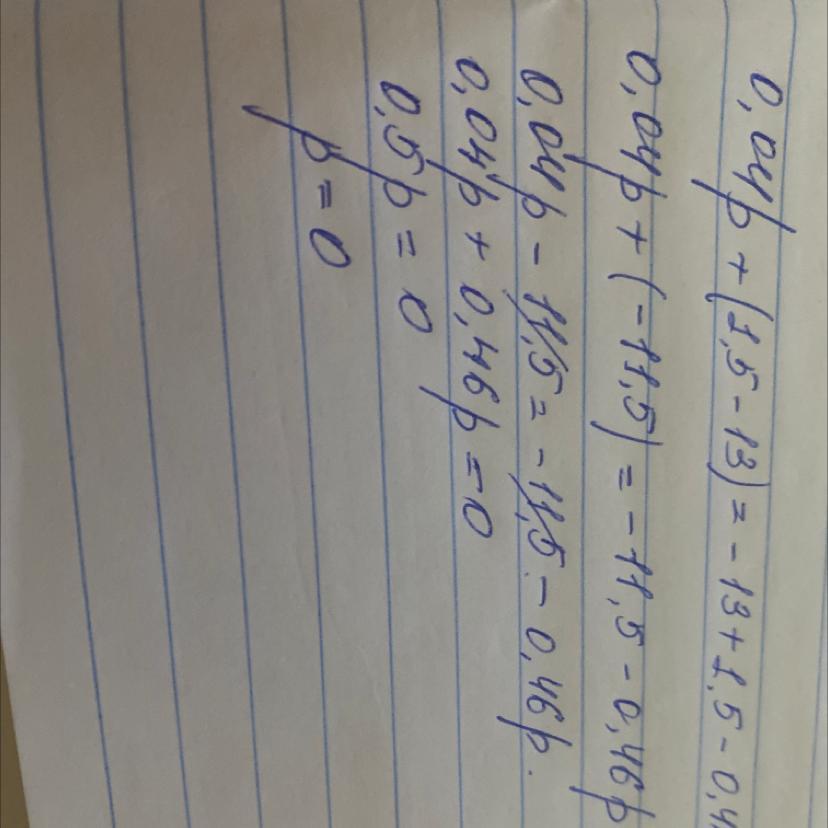 0,04p + (1,5 - 13) = - 13 + 1,5 - 0,4
0,04p + (-11,5) = - 11,5 - 0,46p
0,04p - 11,5 = - 11,5 - 0,46p.
0,04p + 0,46p = 0
0,5p = 0
p = 0